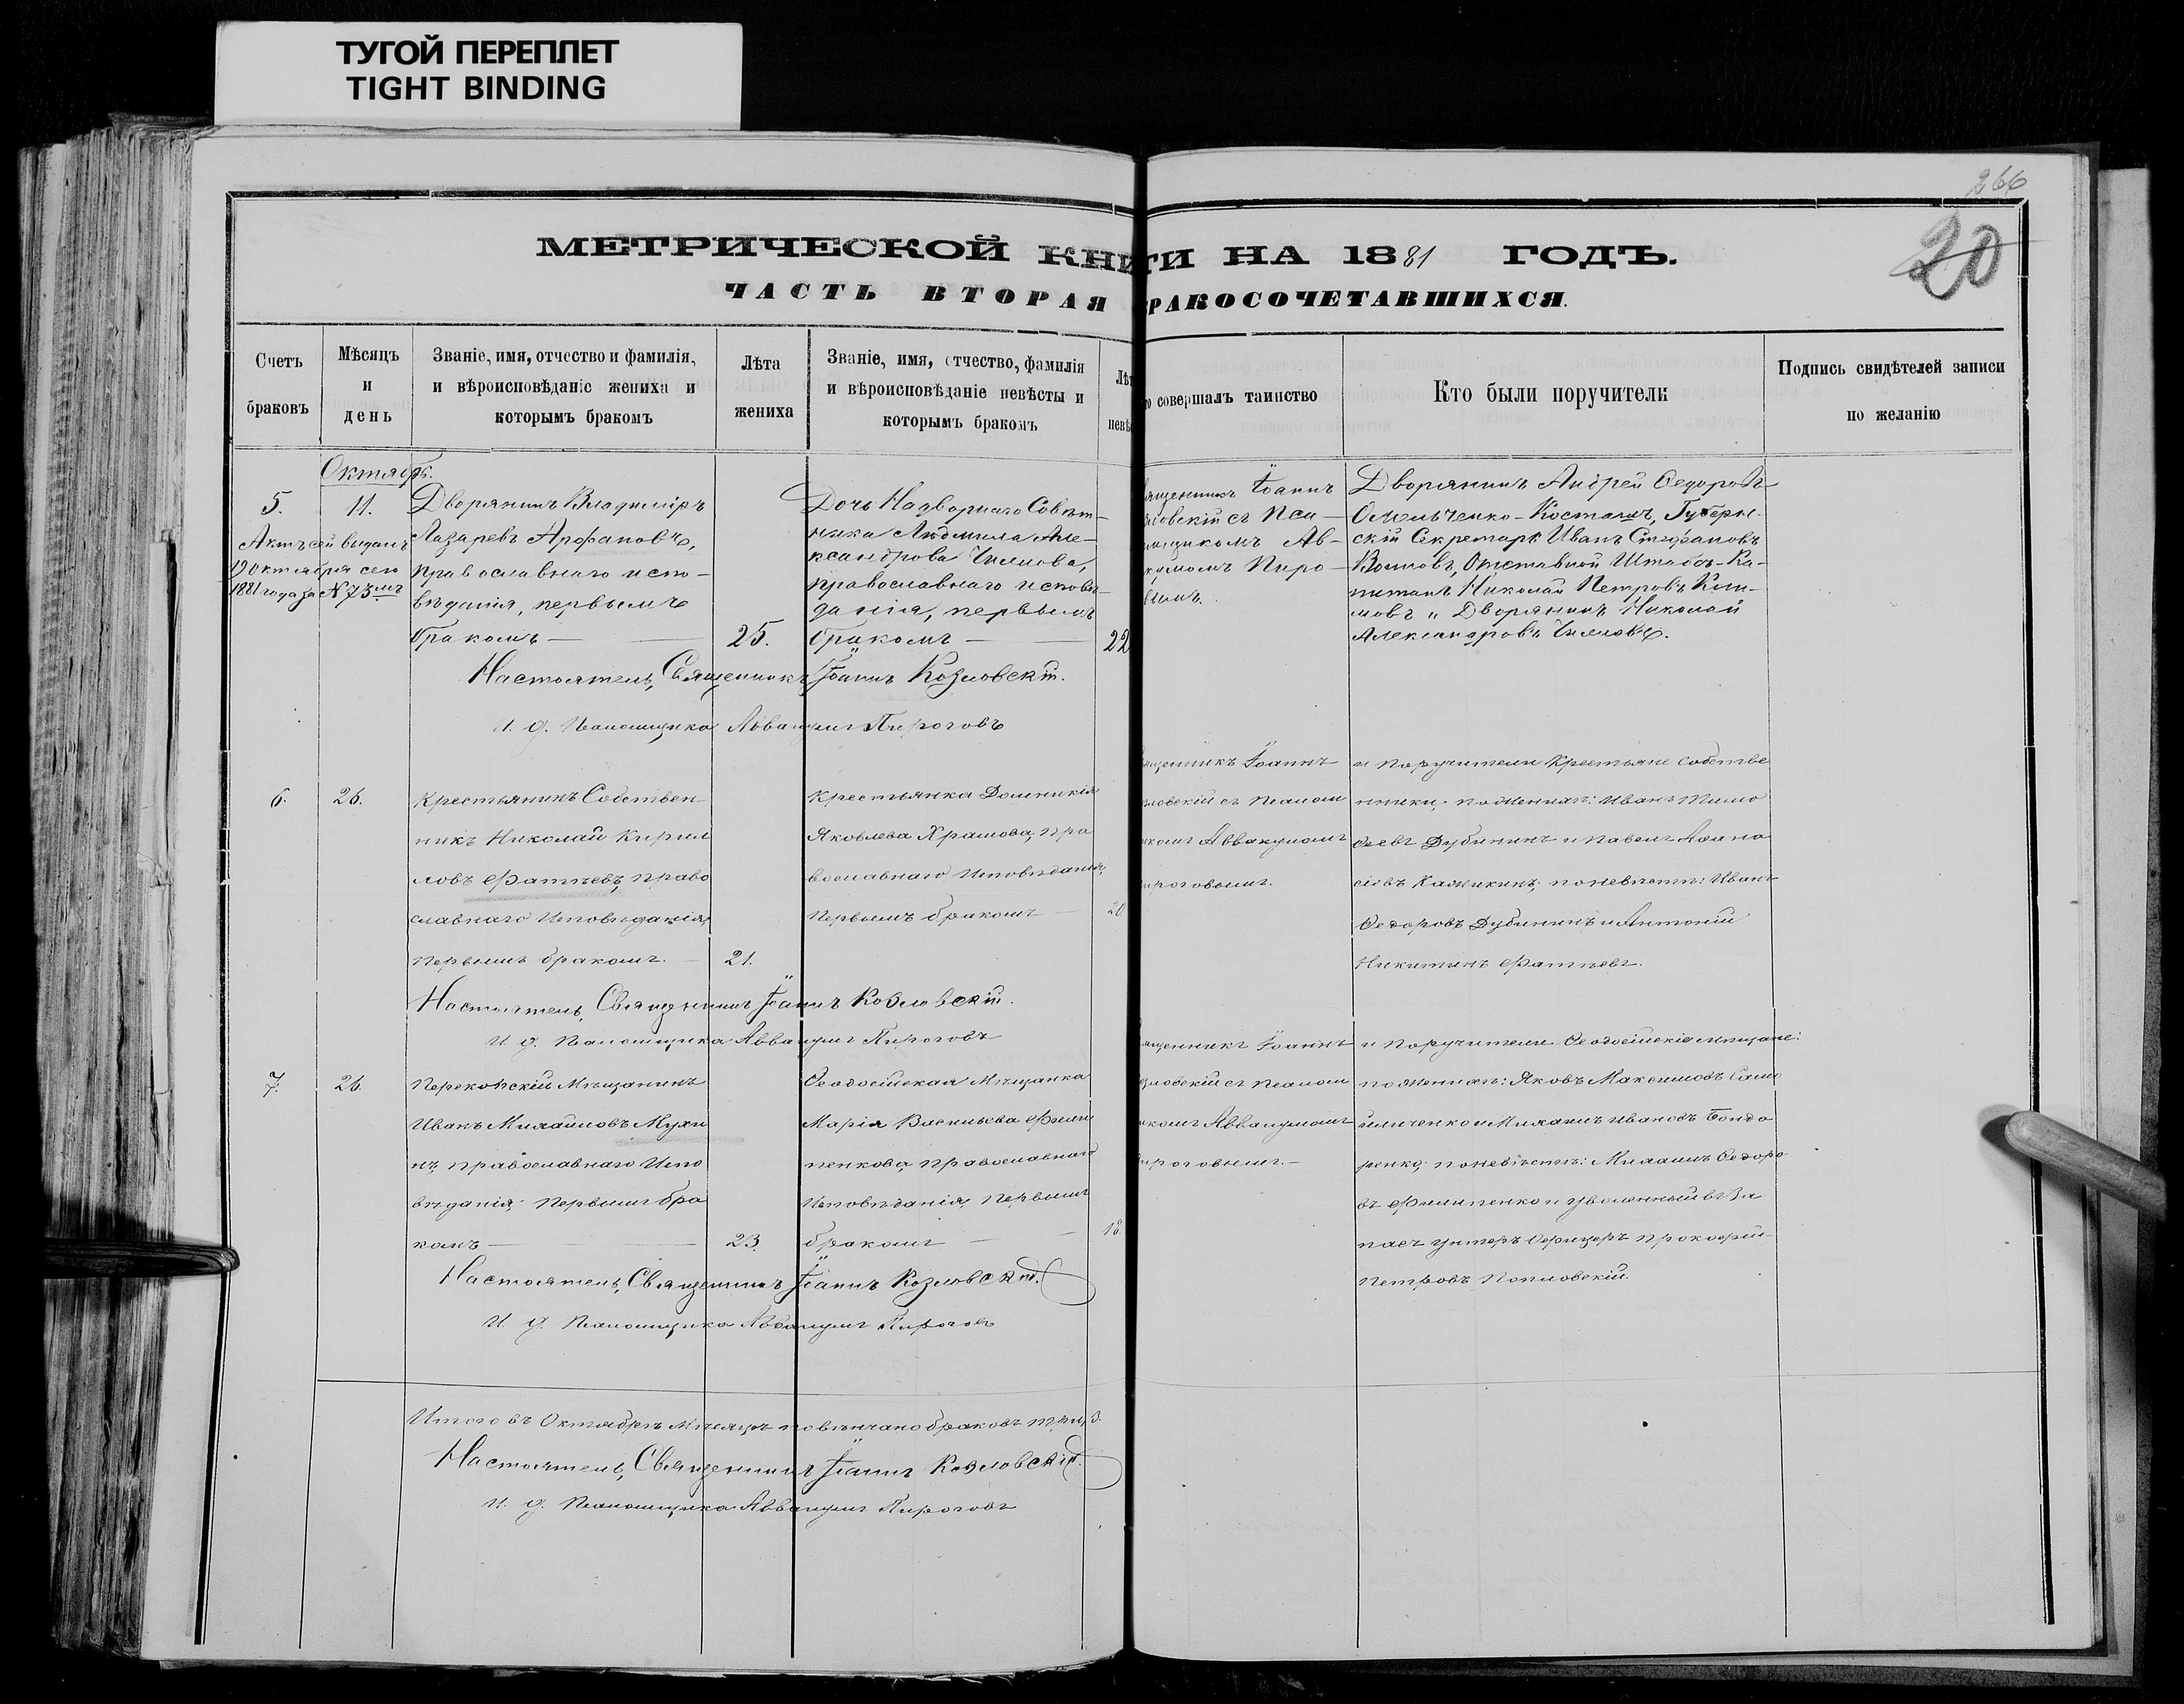 ТУГОЙ ПЕРЕПЛЕТ
TIGHT BINDING
266
20
МЕТРИЧЕСКОЙ КНИГИ НА 1881 ГОДЪ.
ЧАСТЬ ВТОРАЯ РАКОСОЧЕТАВШИХСЯ.
Счетъ
браковъ
Мѣсяцъ
и
день
Званіе, имя, отчество и фамилія,
и вѣроисповѣданіе жениха и
которымъ бракомъ
Лѣта
жениха
Званіе, имя, отчество, фамилія
и вѣроисповѣданіе невѣсты и
которымъ бракомъ
Лѣт
невѣс
о совершалъ таинство
Кто были поручители
Подпись свидѣтелей записи
по желанію
Октябрь.
5.
Актъ сей выданъ
19 октября сего
1881 года за № 73мъ
11.
Дворянинъ Владиміръ
Лазаревъ
православнаго испо-
вѣданія, первымъ
бракомъ
25.
Дочь Надворнаго Совѣт-
ника Людмила Але-
ксандрова Чилмова,
православнаго исповѣ-
данія, первымъ
бракомъ
22
ященникъ Іоаннъ
ловскій съ Пса-
мщикомъ Ав-
кумомъ Пиро-
вымъ.
Дворянинъ Андрей Ѳедоровъ
Омельченко-Косталъ, Губерн-
скій Секретарь Иванъ Стефановъ
Отставной Штабсъ-Ка-
питанъ Николай Петровъ
Дворянинъ Николай
Александровъ Чилмовъ.
Настоятель, Священникъ Іоаннъ Козловскій.
И. д. Псаломщика Аввакумъ Пироговъ
6.
26.
Крестьянинъ Собствен
никъ Николай Кирил
ловъ Фатѣевъ, право
славнаго Исповѣданія,
первымъ бракомъ.
21.
Крестьянка Домникія
Яковлева Храмова, пра
вославнаго Исповѣданія,
Первымъ бракомъ
20.
ященникъ Іоаннъ
зловскій съ Псалом
икомъ Аввакумомъ
ироговымъ.
и Поручители Крестьяне Собстве
нники, по Женихѣ: Иванъ Тимо
ѳеевъ Дубининъ и Павелъ Аѳана
сіевъ Калинкинъ; по невѣстѣ: Иванъ
Ѳедоровъ Дубининъ и Антоній
Никитинъ Фатѣевъ.
Настоятель, Священникъ Іоаннъ Козловскій.
И. д. Псаломщика Аввакумъ Пироговъ
7.
26.
Перекопскій Мѣщанинъ
Иванъ Михайловъ Мухи
нъ, православнаго Испо
вѣданія, Первымъ бра
комъ
23.
Ѳеодосійская Мѣщанка
Марія Васильева Фили
пенкова, православнаго
Исповѣданія, Первымъ
бракомъ
18.
ященникъ Іоаннъ
зловскій съ Псалом
икомъ Аввакумомъ
ироговымъ.
и Поручители Ѳеодосійскіе мѣщане:
по Женихѣ: Яковъ Максимовъ Само
йличенко и Михаилъ Ивановъ Бондо
ренко; по невѣстѣ: Михаилъ Ѳедоро
въ Филипенко и уволенный въ За
пасъ унтеръ Офицеръ Прокофій
Петровъ Поплавскій.
Настоятель, Священникъ Іоаннъ Козловскій.
И. д. Псаломщика Аввакумъ Пироговъ
Итого въ Октябрѣ Мѣсяцѣ повѣнчано браковъ три, 3.
Настоятель, Священникъ Іоаннъ Козловскій.
И. д. Псаломщика Аввакумъ Пироговъ